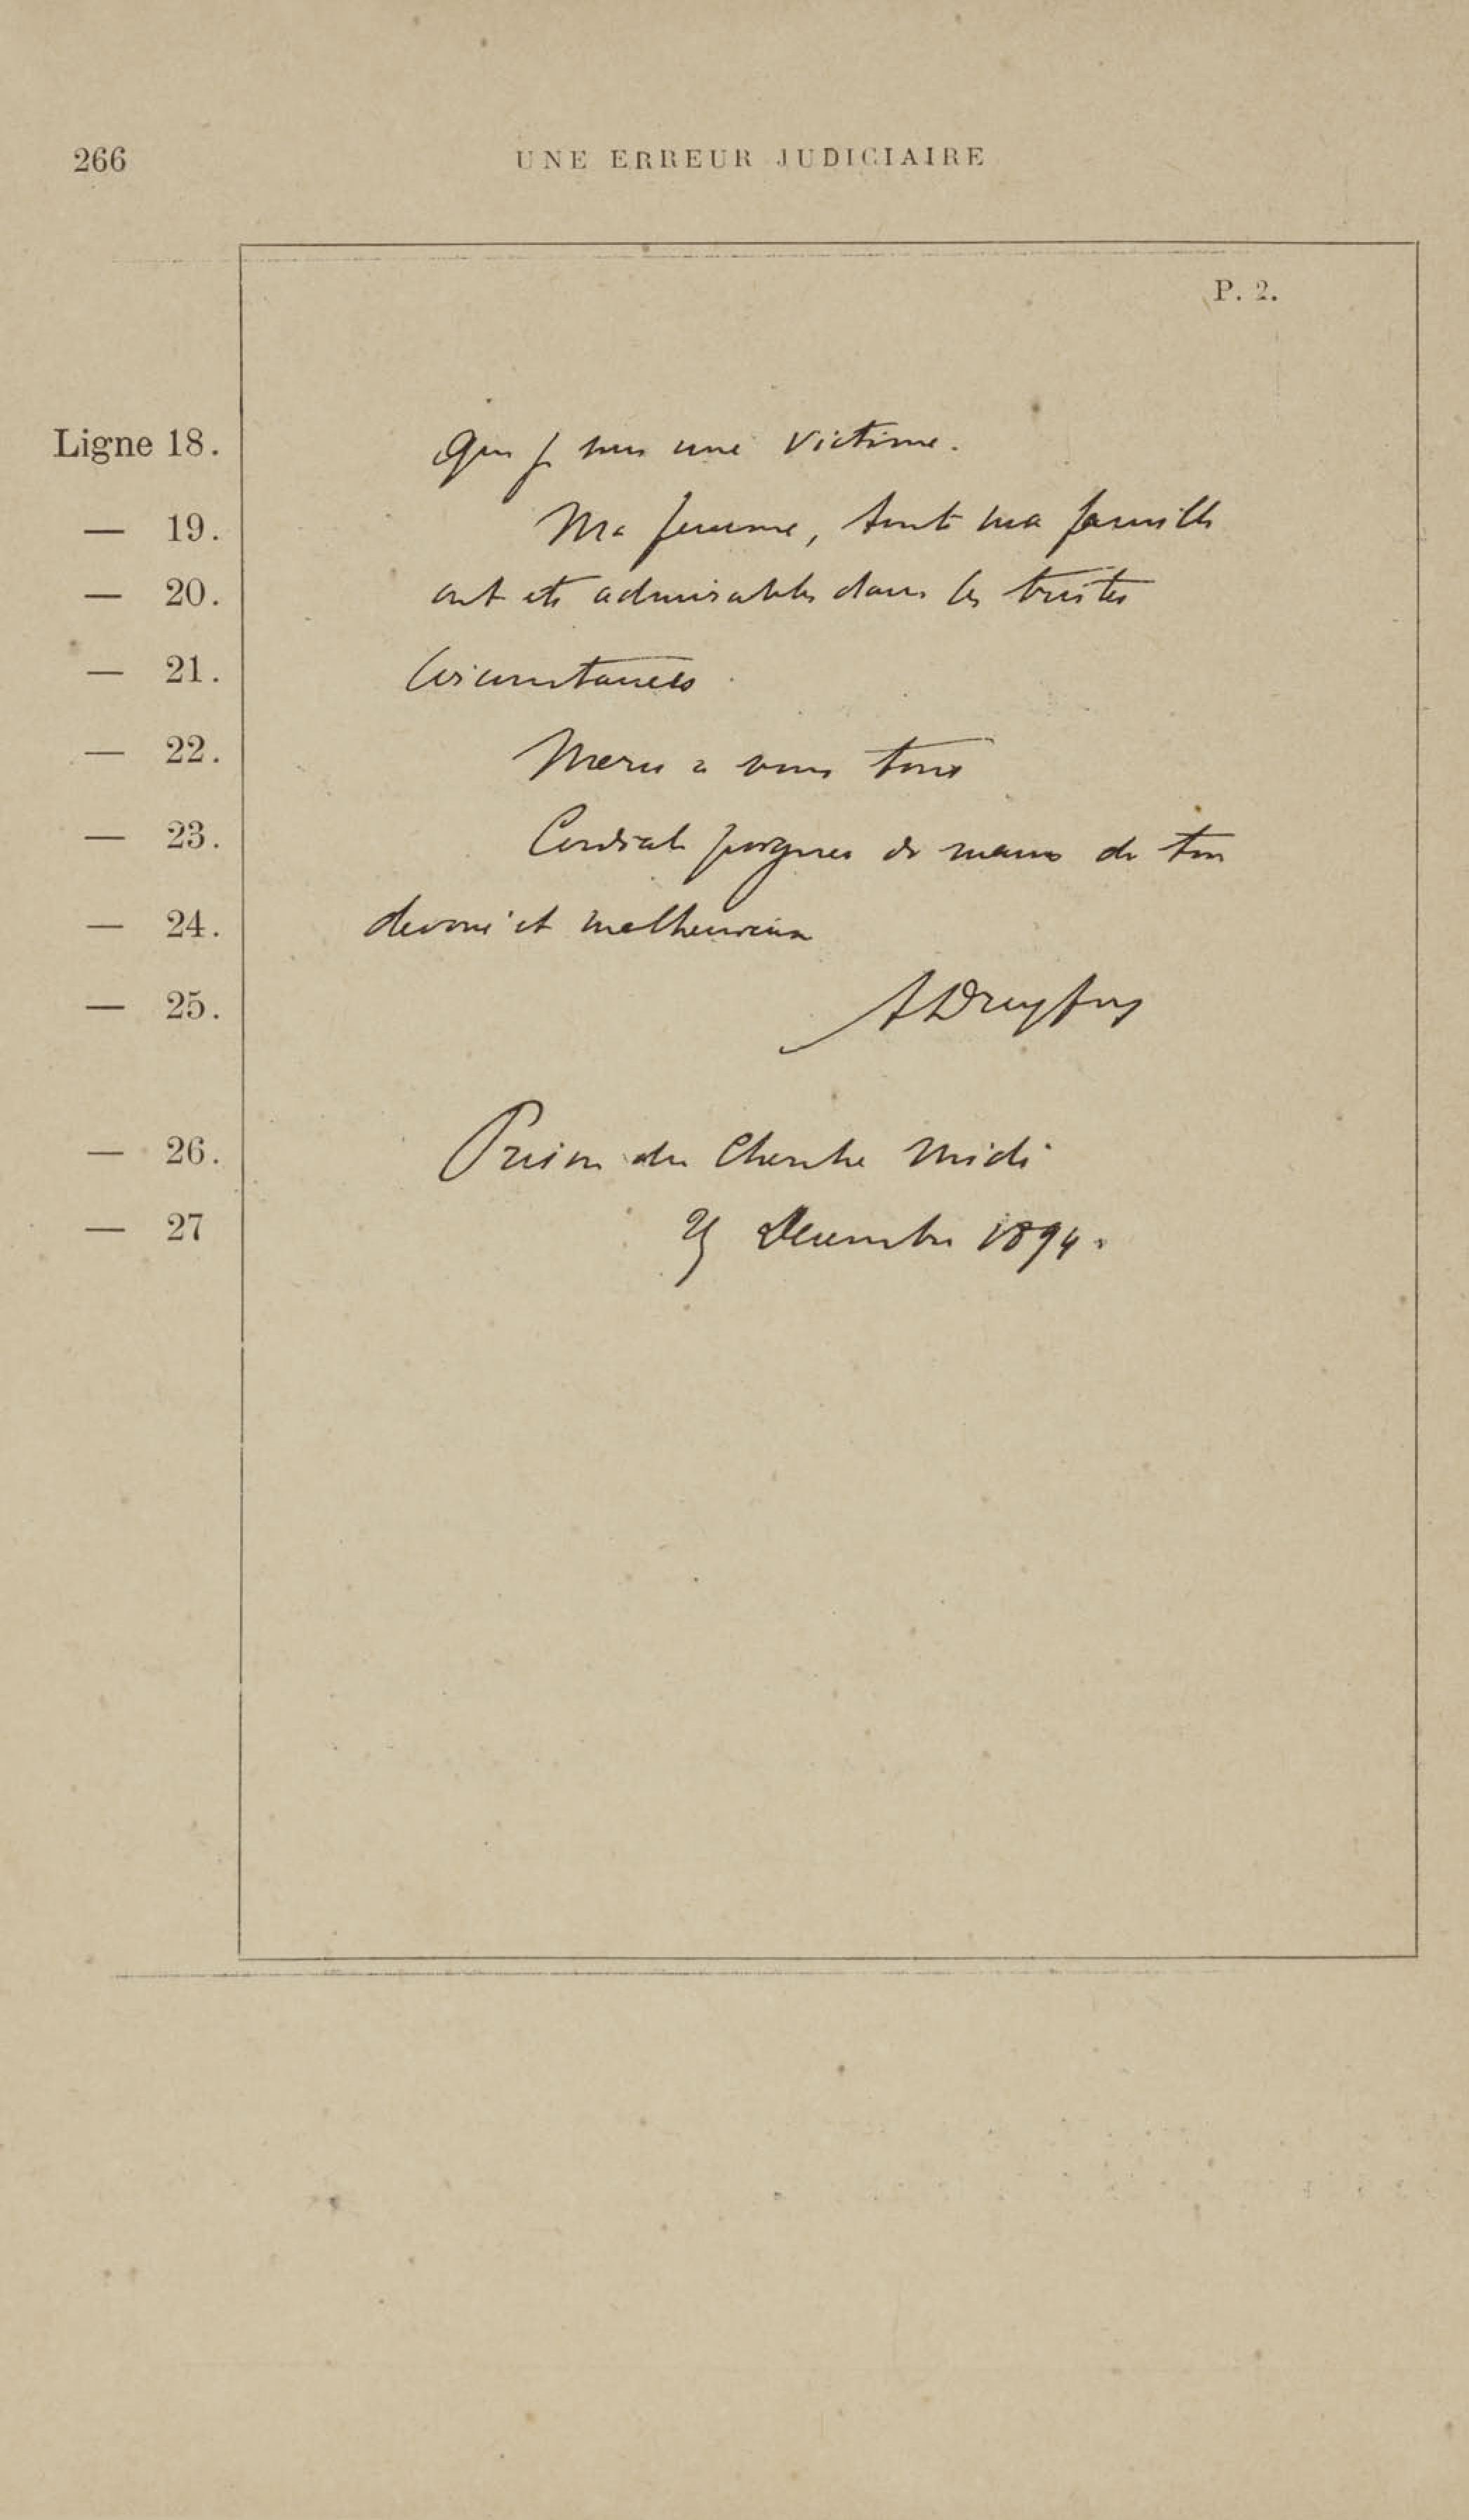 266 UNE ERREUR JUDICIAIRE
P. 2.
Ligne 18. que je suis une victime.
— 19. Ma femme, toute ma famille
— 20. ont été admirables dans les tristes
— 21. circonstances
— 22. Merci à vous tous
— 23. Cordiale poignées de mains de ton
— 24. devoué et malheureux
— 25. ADreyfus
— 26. Prison du Cherche Midi
— 27 Decembre 1894.